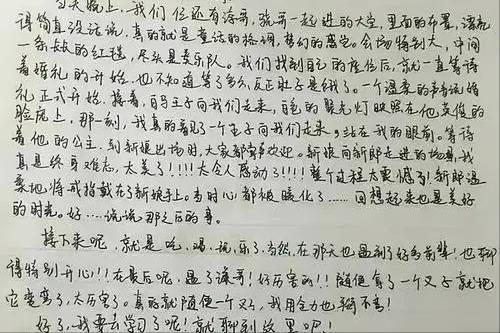 当天晚上，我们位还有海哥，强哥一起进的大堂，里面的布置，漂亮
得简直没话说，真的就是童话的格调，梦幻的感觉。会场特别大，中间
一条长长的红毯，尽头是乐队。我们找到自己的座位后，就一直等待
着婚礼的开始，也不知道等了多久，反正肚子是饿了。一个温柔的声音说婚
礼正式开始，接着，王子向我们走来，暖暖的聚光灯映照在他英俊的
脸庞上，那一刻，我真的看见了一个王子向我们走来。站在我的眼前。等待
着他的公主。到新娘出场时，大家都鼓掌欢迎。新娘向新郎走进的场景，我
真是终身难忘，太美了！！！太令人感动了！！！！整个过程太震憾了！新郎温
柔地将戒指戴在了新娘手上。当时心都被暖化了……回想起来也是美好
的时光。好……说说那之后的事。
接下来呢，就是吃、喝、玩、乐了，当然，在那天也遇到了好多前辈！也聊
得特别开心！！在最后呢，遇了海哥！好厉害的！！随便拿了一个叉子就把
它变弯了，太厉害了。真的就随便一个叉子，我用全力也掰不弯！
好了，我要去学习了呢！就聊到这里吧！